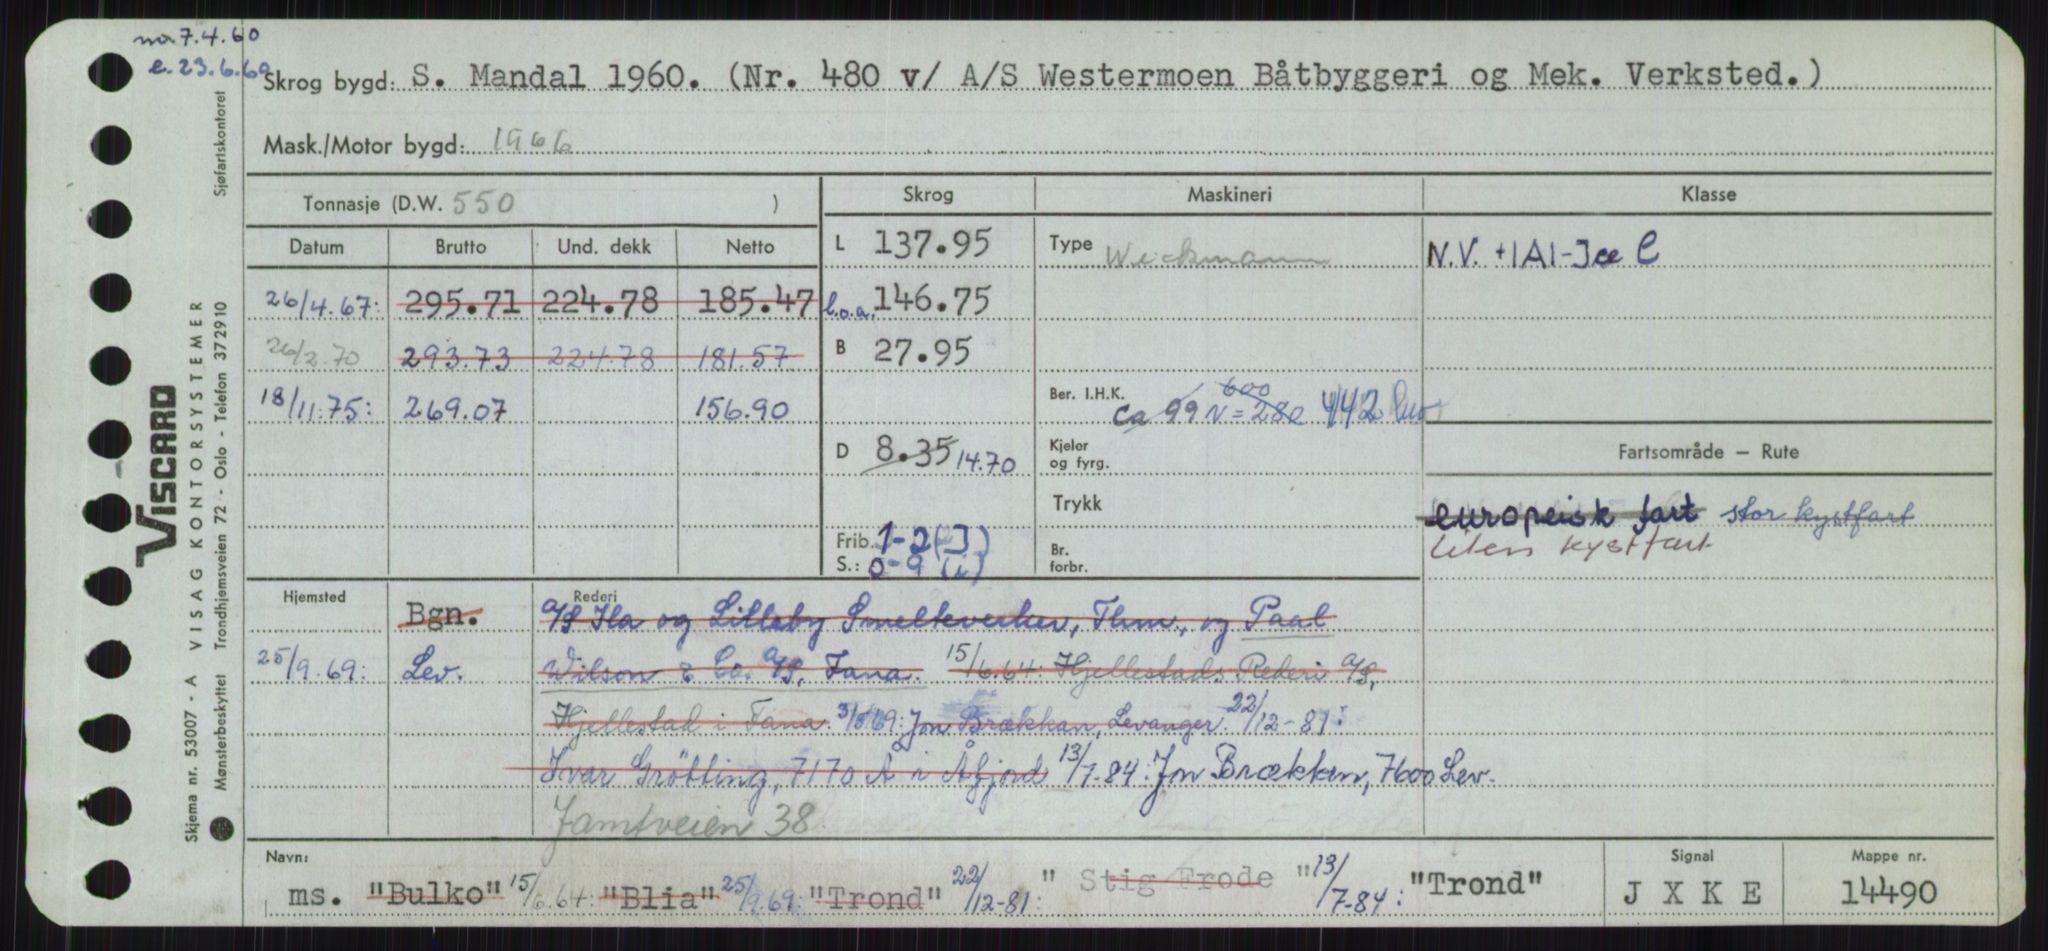 na 7.4.60
e. 23.6.60
Skrog bygd: S. Mandal 1960. (Nr. 480 v/ A/S Westermoen Båtbyggeri og Mek. Verksted.)
Mask./Motor bygd: 1966
Tonnasje (D.W. 550 )
Skrog Maskineri Klasse
Datum Brutto Und. dekk Netto
L 137.95 Type Wickmann N.V. +1A1-Ice C
26/4.67: 295.71 224.78 185.47 l.o.a. 146.75
26/2.70 293.73 224.78 181.57 B 27.95
18/11.75: 269.07 156.90
Ber. I.H.K. ca 99 N = 280 600 442
D 8.35 14.70 Kjeler og fyrg.
Fartsområde — Rute
Trykk europeisk fart stor kystfart
Frib. 1-2 (I) Br. forbr. liten kystfart
S.: 0-9 (i)
Hjemsted Rederi
Bgn. A/S Ila og Lilleby Smelteverker, Thm., og Paal
25/9.69: Lev. Wilson & Co. A/S, Fana. 15/6.64: Hjellestads Rederi A/S,
Hjellestad i Fana. 3/8 69: Jon Brækkan, Levanger. 22/12-81:
Ivar Grötting, 7170 Å i Åfjord 13/7-84: Jon Brækkan, 7600 Lev.
Jamtveien 38
Navn: Signal Mappe nr.
ms. "Bulko" 15/6.64: "Blia" 25/9.69: "Trond" 22/12-81: " Stig Frode " 13/7-84: "Trond" J X K E 14490
VISCARD
Skjema nr. 53007 - A VISAG KONTORSYSTEMER
Mønsterbeskyttet Trondhjemsveien 72 - Oslo - Telefon 372910 Sjøfartskontoret